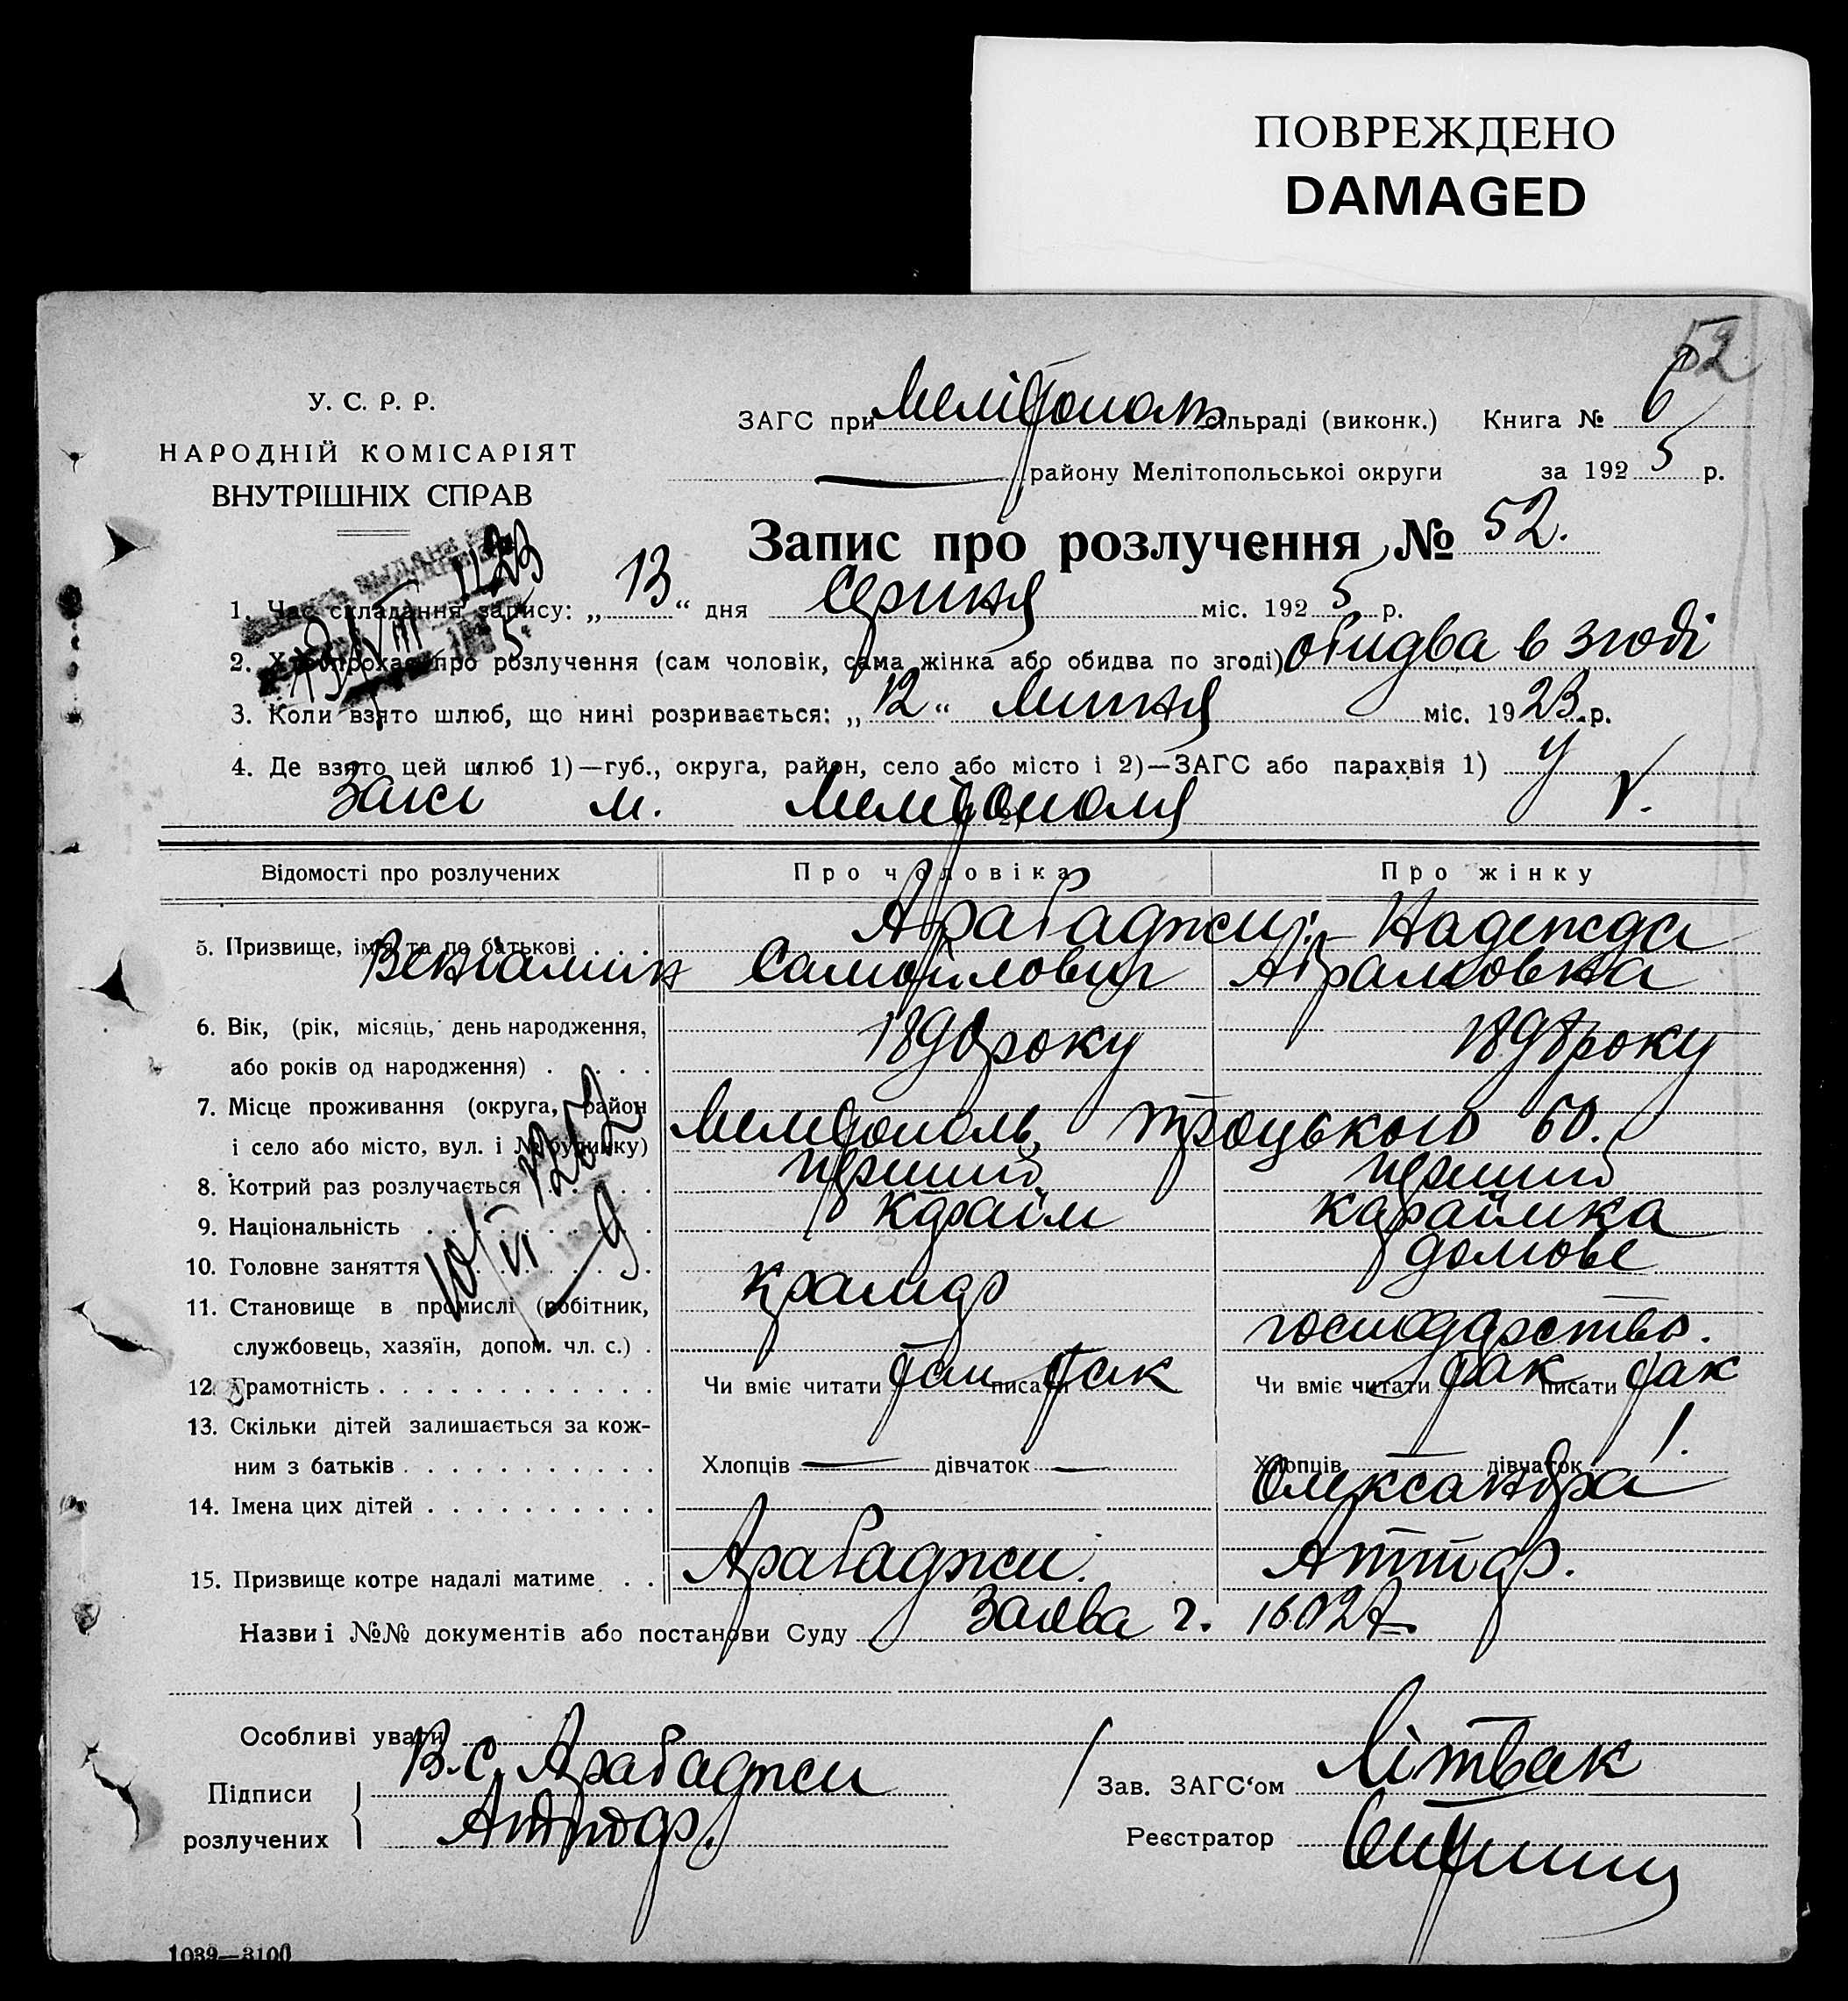 ПОВРЕЖДЕНО
DAMAGED
52
У. С. Р. Р.
НАРОДНІЙ КОМІСАРІЯТ
ВНУТРІШНІХ СПРАВ
ЗАГС при Мелітополь сільраді (виконк.) Книга № 6
— району Мелітопольської округи за 1925 р.
Запис про розлучення № 52.
1. Час складання запису: „13“ дня Серпня міс. 1925 р.
2. Хто прохає про розлучення (сам чоловік, сама жінка або обидва по згоді) обидва в згоді
3. Коли взято шлюб, що нині розривається: „12“ Липня міс. 1923 р.
4. Де взято цей шлюб 1)—губ., округа, район, село або місто і 2)—ЗАГС або парахвія 1) У
Загсі м. Мелітополя
Відомості про розлучених Про чоловіка Про жінку
5. Призвище, ім'я та по батькові Арабаджи: – Надежда
Веніамин Самойлович Абрамовна
6. Вік, (рік, місяць, день народження,
або років од народження) 1890 року 1898 року
7. Місце проживання (округа, район
і село або місто, вул. і № будинку) Мелітополь, Троцького 60.
8. Котрий раз розлучається перший перший
9. Національність Караїм караїмка
10. Головне заняття крамар домове
11. Становище в промислі (робітник,
службовець, хазяїн, допом. чл. с.) господарство.
12. Грамотність Чи вміє читати так писати так Чи вміє читати так писати так
13. Скільки дітей залишається за кож-
ним з батьків Хлопців — дівчаток — Хлопців дівчаток 1.
14. Імена цих дітей Олександра
15. Призвище котре надалі матиме Арабаджи. Аттар.
Назви і №№ документів або постанови Суду Заява ч. 16027
Особливі уваги
Підписи
розлучених
В.С. Арабаджи
Зав. ЗАГС'ом Літвак
Реєстратор
1039—3100